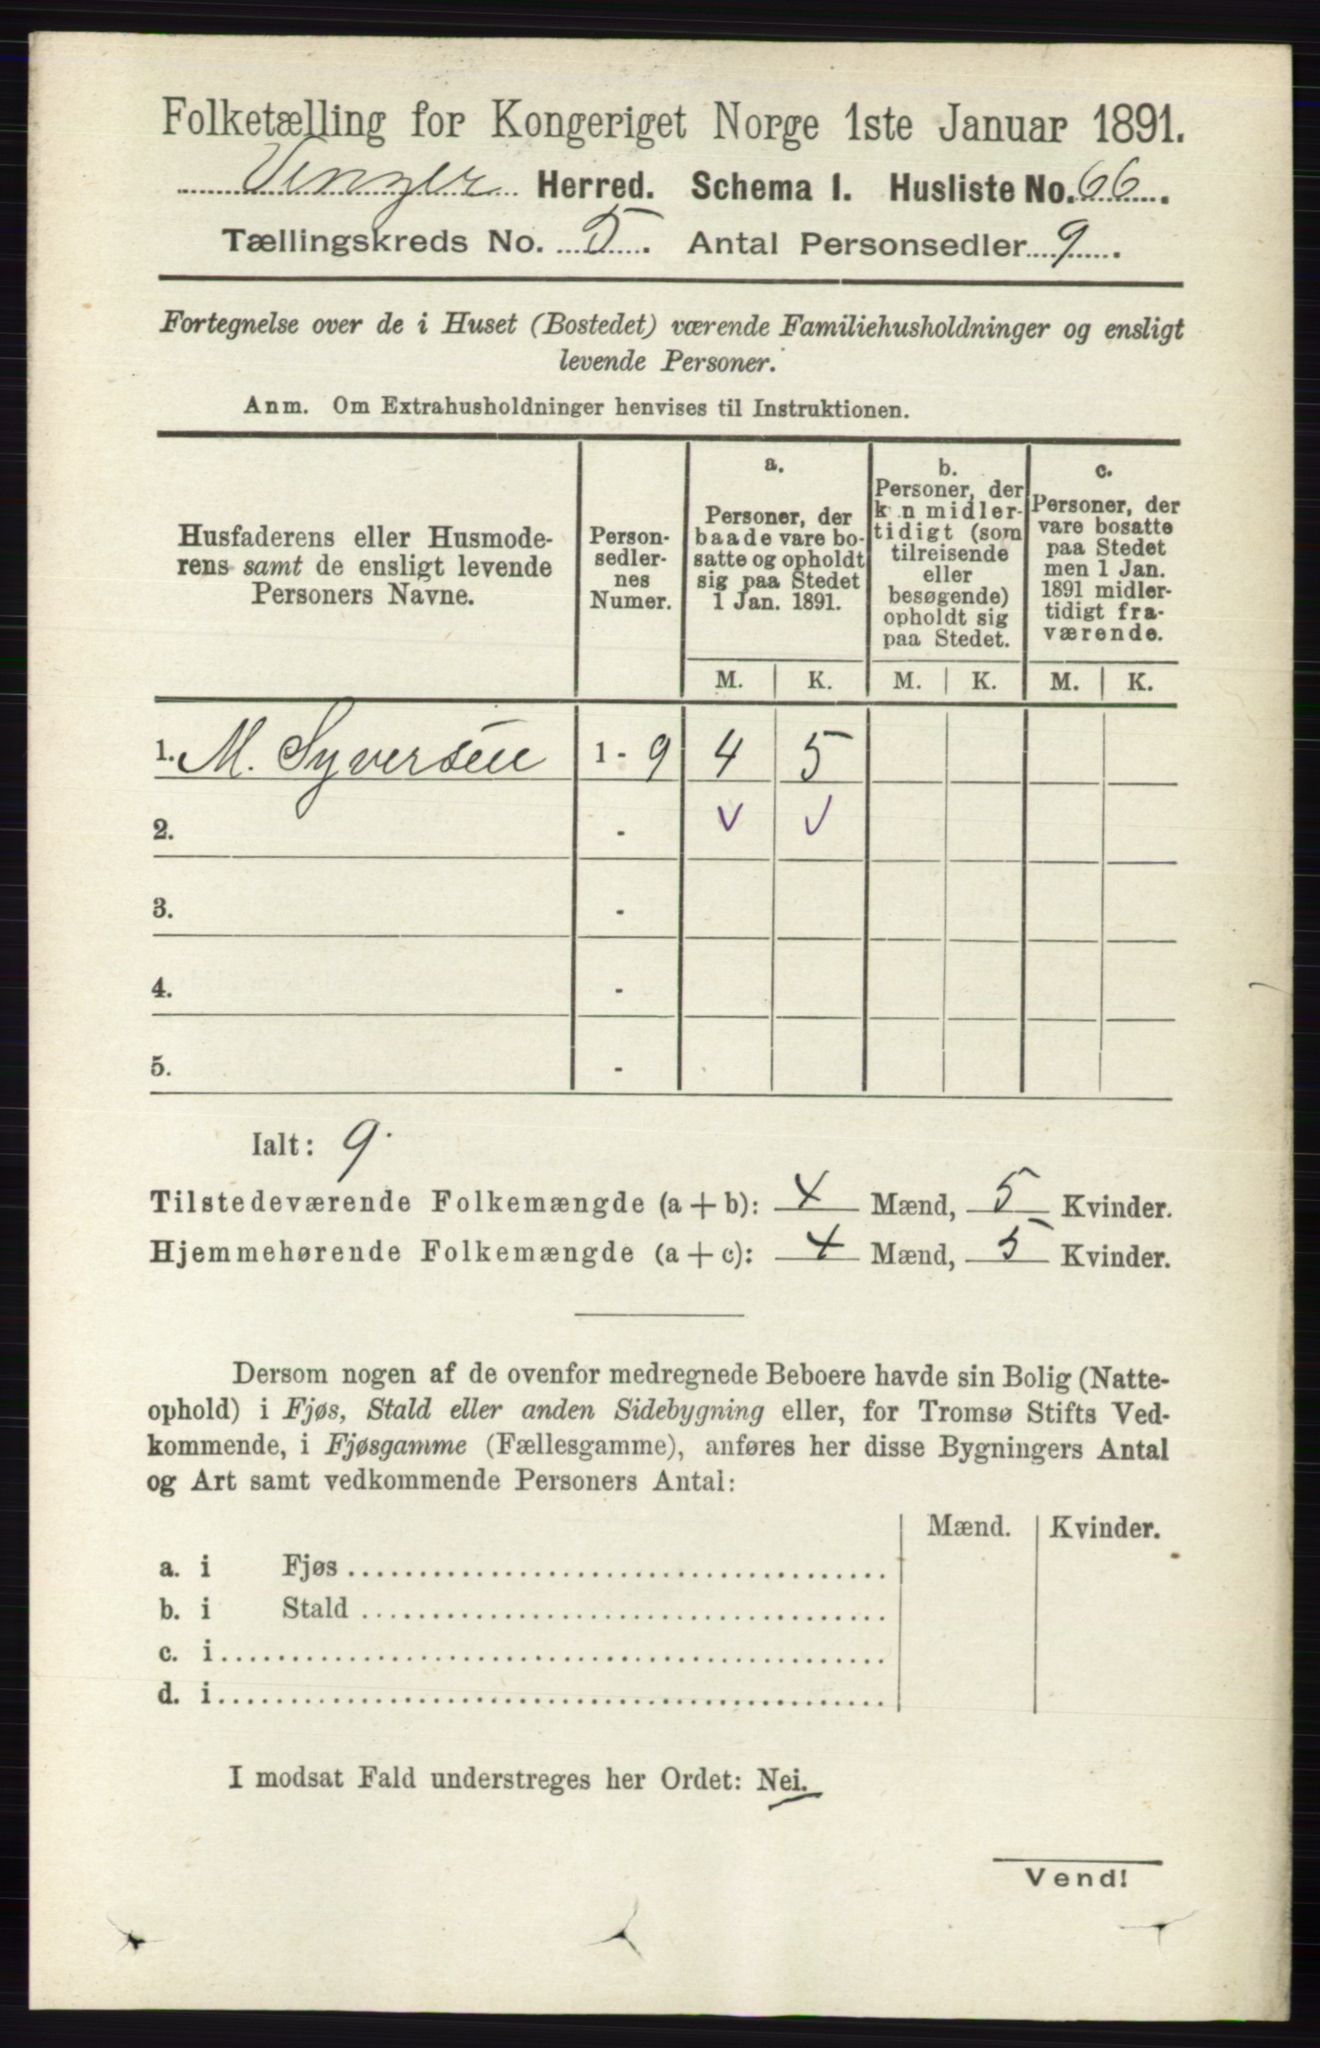 Folketælling for Kongeriget Norge 1ste Januar 1891.
Vinger Herred. Schema 1. Husliste No. 66.
Tællingskreds No. 5. Antal Personsedler 9.
Fortegnelse over de i Huset (Bostedet) værende Familiehusholdninger og ensligt
levende Personer.
Anm. Om Extrahusholdninger henvises til Instruktionen.
Husfaderens eller Husmode-
rens samt de ensligt levende
Personers Navne.
Person-
sedler-
nes
Numer.
a.
Personer, der
baade vare bo-
satte og opholdt
sig paa Stedet
1 Jan. 1891.
b.
Personer, der
k n midler-
tidigt (som
tilreisende
eller
besøgende)
opholdt sig
paa Stedet.
c.
Personer, der
vare bosatte
paa Stedet
men 1 Jan.
1891 midler-
tidigt fra-
værende.
M. K. M. K. M. K.
1. M. Syversen 1 - 9 4 5
2. - v v
3. -
4. -
5. -
Ialt: 9.
Tilstedeværende Folkemængde (a + b): 4 Mænd, 5 Kvinder.
Hjemmehørende Folkemængde (a + c): 4 Mænd, 5 Kvinder.
Dersom nogen af de ovenfor medregnede Beboere havde sin Bolig (Natte-
ophold) i Fjøs, Stald eller anden Sidebygning eller, for Tromsø Stifts Ved-
kommende, i Fjøsgamme (Fællesgamme), anføres her disse Bygningers Antal
og Art samt vedkommende Personers Antal:
Mænd. Kvinder.
a. i Fjøs
b. i Stald
c. i
d. i
I modsat Fald understreges her Ordet: Nei.
Vend!